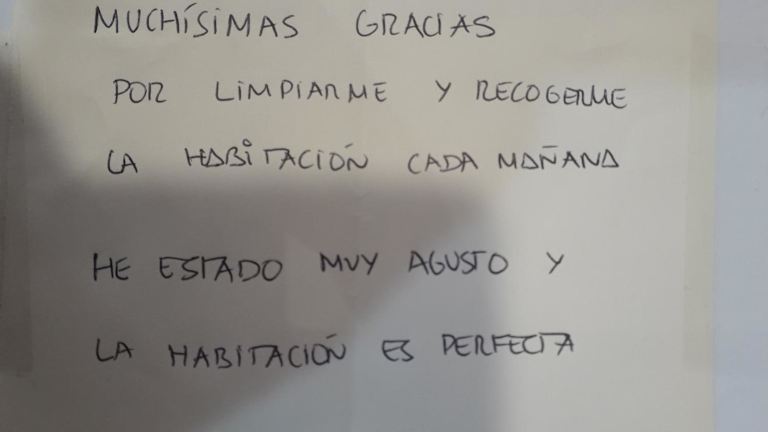 MUCHÍSIMAS GRACIAS
POR LIMPIARME Y RECOGERME
LA HABITACIÓN CADA MAÑANA
HE ESTADO MUY AGUSTO Y
LA HABITACIÓN ES PERFECTA